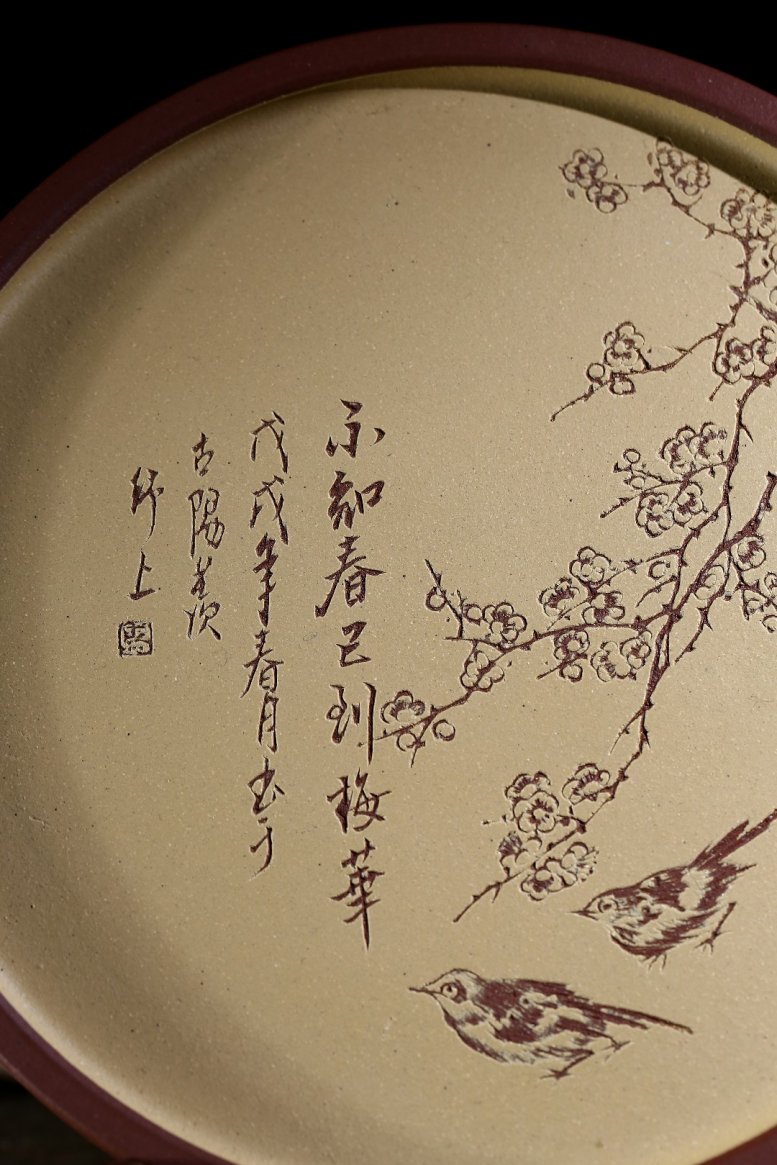 不知春已到梅華
戊戌年春月書于
古陽羡
上